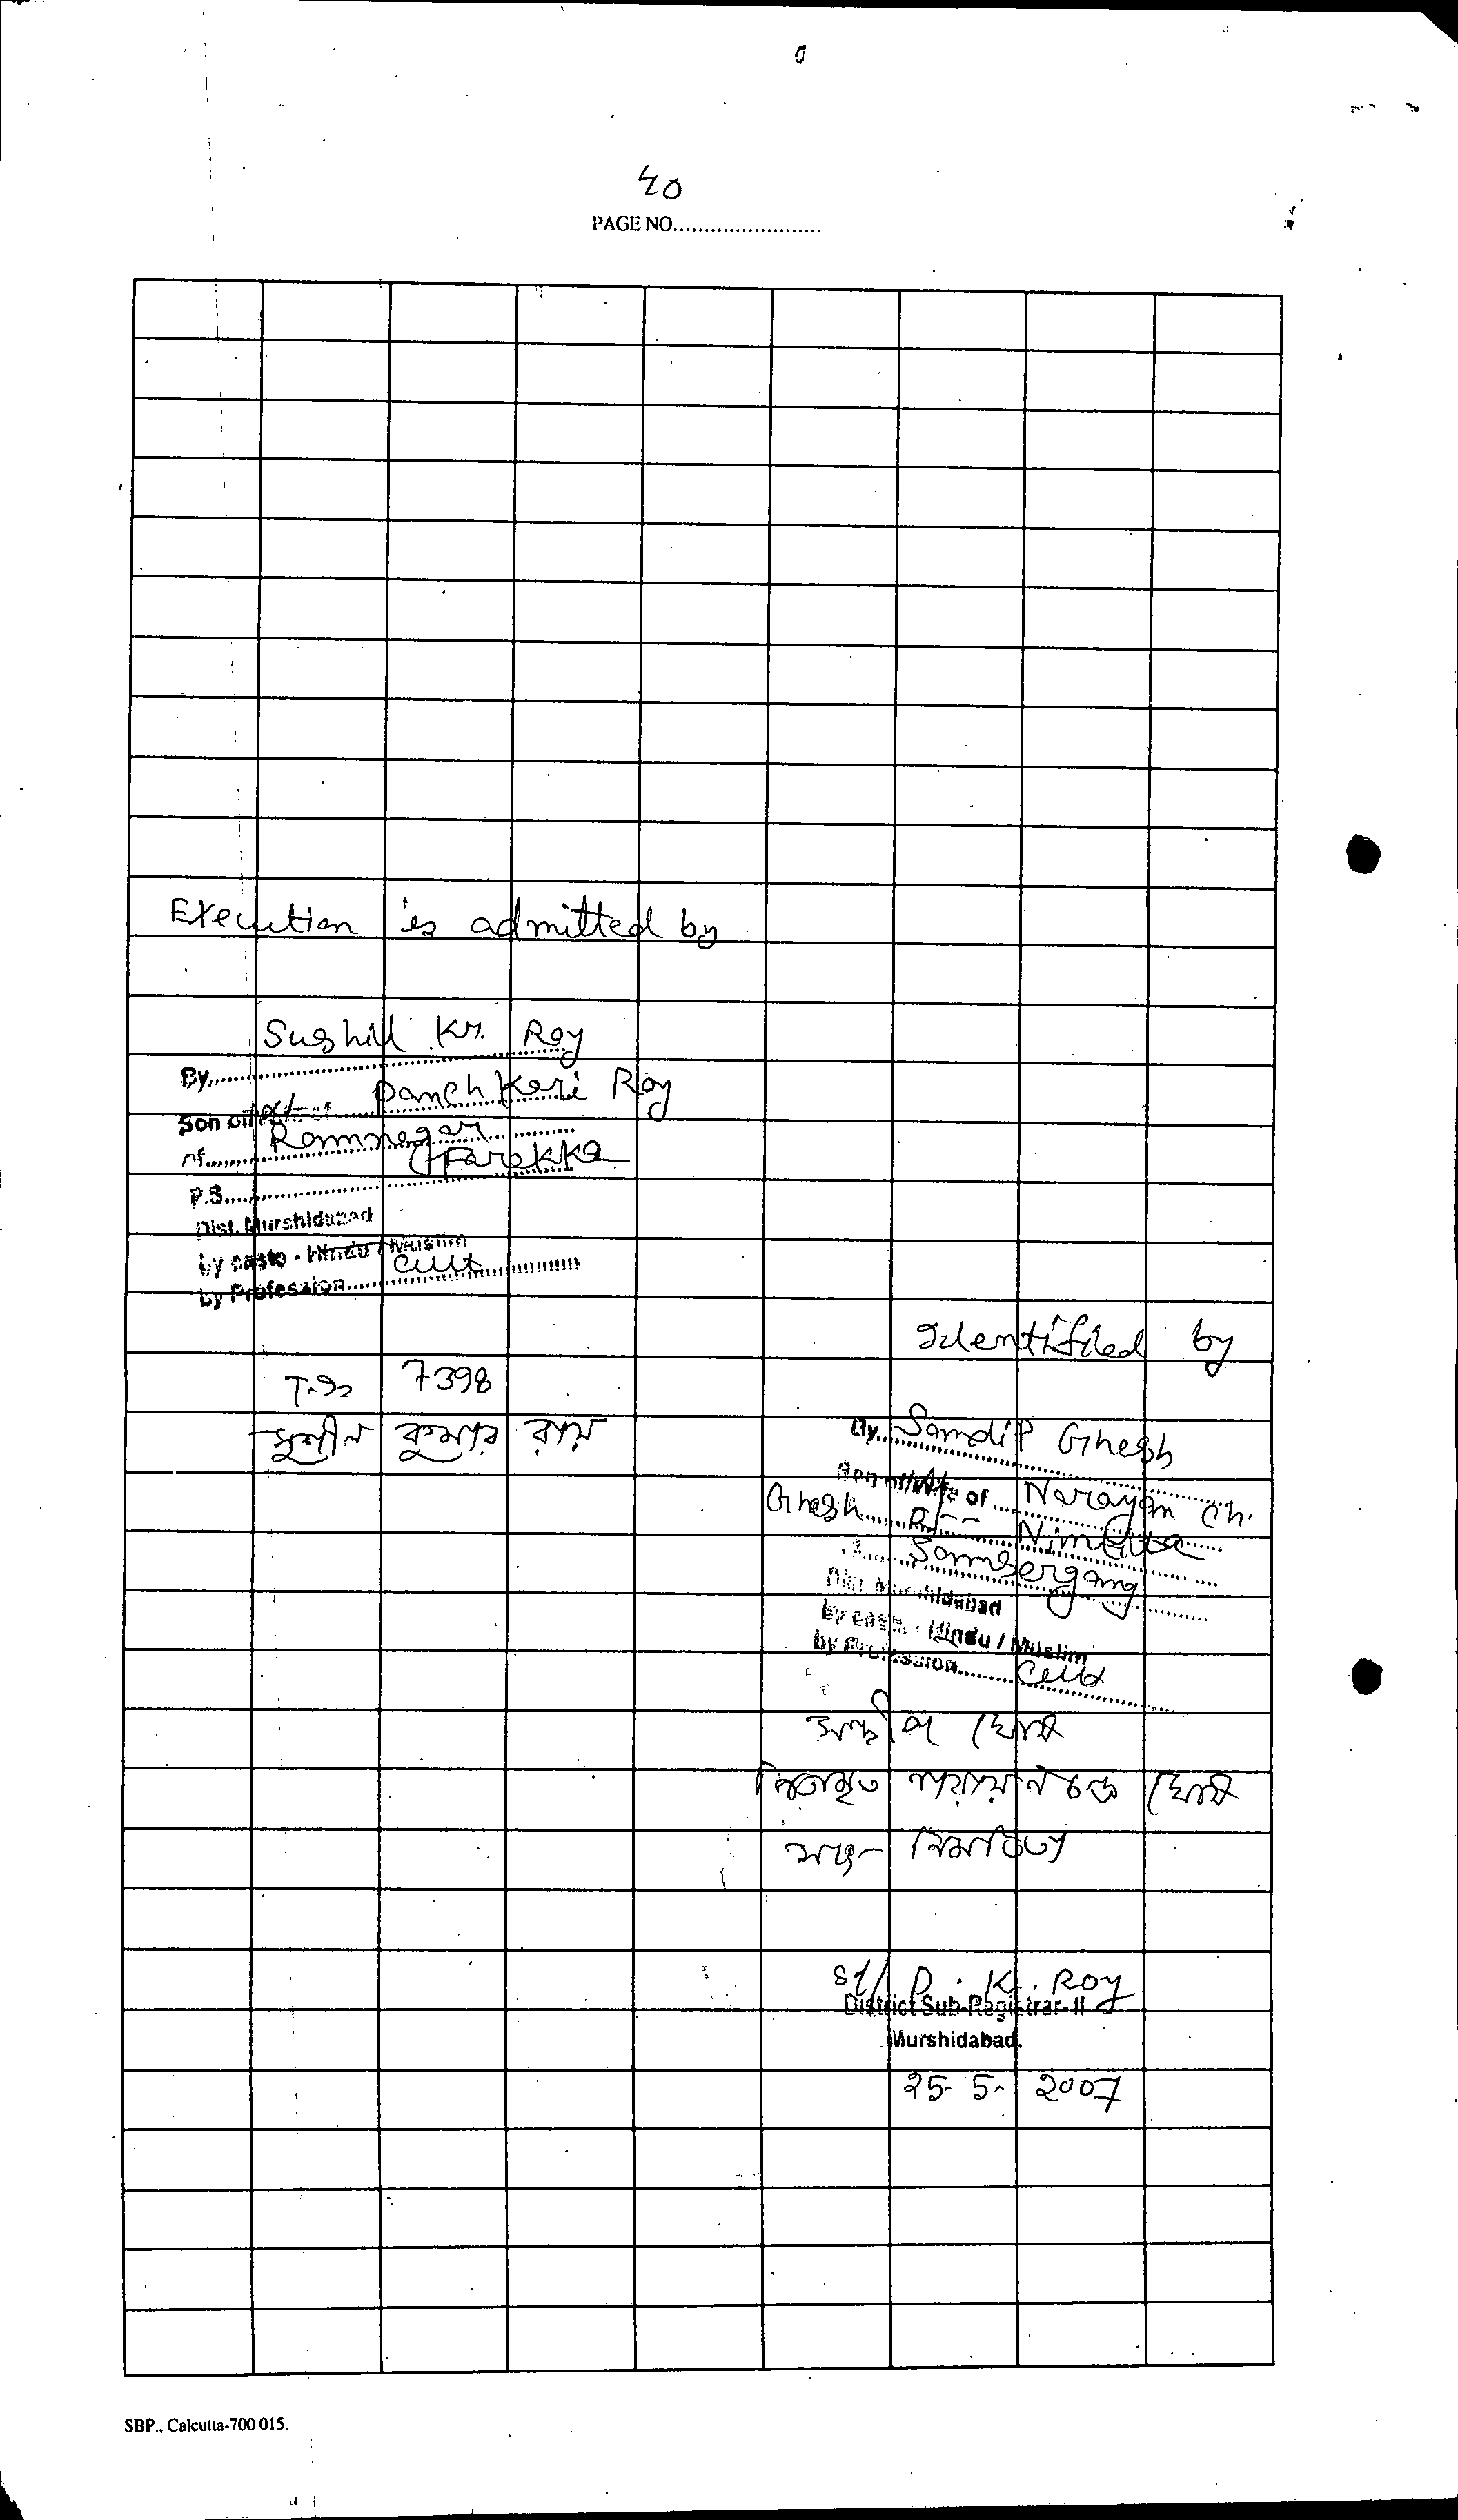 40
PAGE NO........................
Execution is admitted by
Sushill Kr. Roy
By
Son of Lt Panchkari Roy
of Ramnagar
P.S. Farakka
Dist. Murshidabad
by caste - Hindu / Muslim
by Profession Cult
Identified by
T.I 7398
সুশীল কুমার রায়
By Sandip Ghosh
Son of/Wife of Narayan Ch.
Ghosh of Nimtita
Samserganj
Dist. Murshidabad
by caste - Hindu / Muslim
by Profession Cult
সন্দীপ ঘোষ
পিতামৃত নারায়ন চন্দ্র ঘোষ
সাং- নিমতিতা
Sd/ D. K. Roy
District Sub-Registrar-II
Murshidabad.
25-5-2007
SBP., Calcutta-700 015.